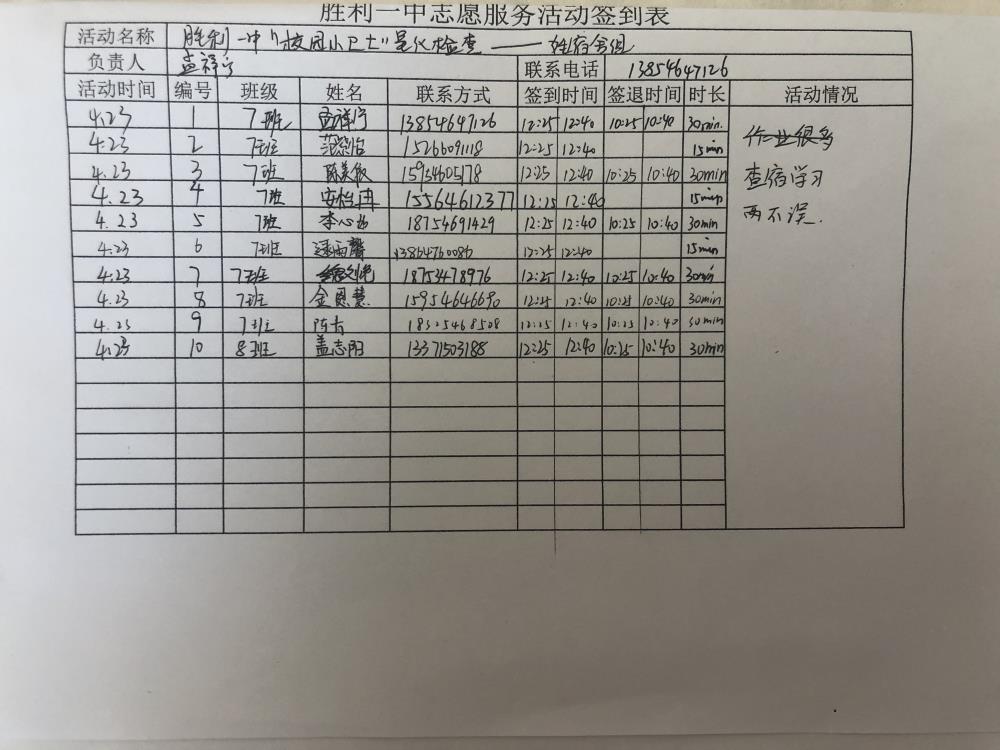 胜利一中志愿服务活动签到表
活动名称 胜利一中"校园小卫士"量化检查——女宿舍组
负责人 孟祥宁 联系电话 13854647126
活动时间 编号 班级 姓名 联系方式 签到时间 签退时间 时长 活动情况
4.23 1 7班 孟祥宁 13854647126 12:25 12:40 10:25 10:40 30min.
4.23 2 7班 15266091118 12:25 12:40 15min
4.23 3 7班 陈美极 15954605178 12:25 12:40 10:25 10:40 30min
4.23 4 7班 安怡冉 15564612377 12:25 12:40 15min
4.23 5 7班 李心 18754691429 12:25 12:40 10:25 10:40 30min
4.23 6 7班 逯雨馨 13864760086 12:25 12:40 15min
4.23 7 7班 18753478976 12:25 12:40 10:25 10:40 30min
4.23 8 7班 金恩慧 15954646690 12:25 12:40 10:25 10:40 30min
4.23 9 7班 18525468508 12:25 12:40 10:25 10:40 30min
4.23 10 8班 盖志阳 13371503188 12:25 12:40 10:25 10:40 30min
作业很多
查宿学习
两不误.